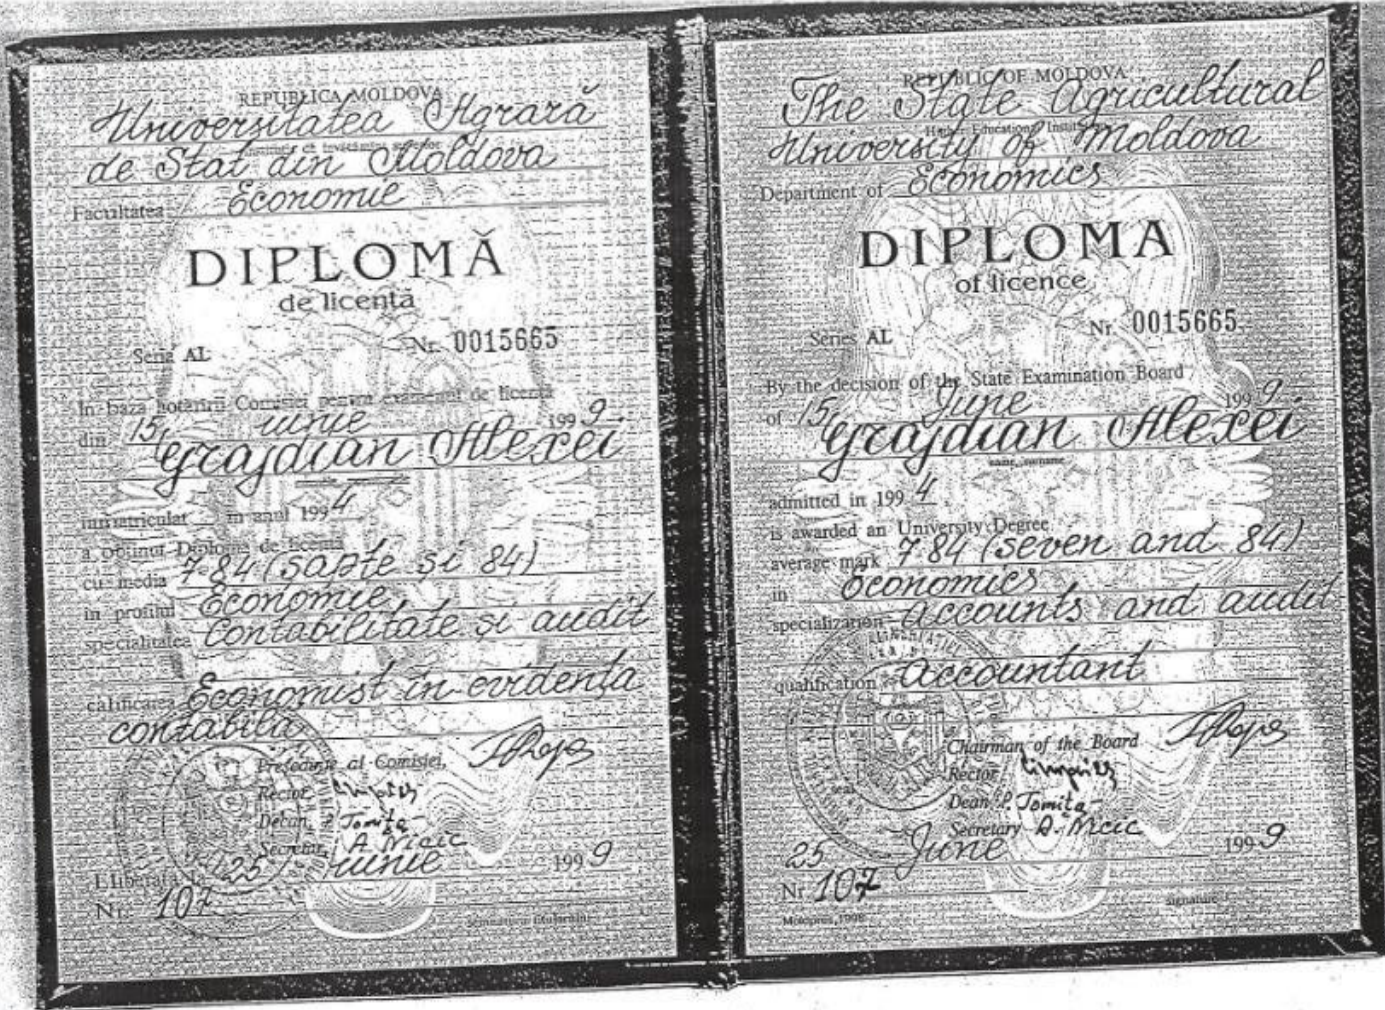 REPUBLICA MOLDOVA
Universitatea Agrară
de Stat din Moldova
Facultatea Economie
DIPLOMĂ
de licență
Seria AL Nr. 0015665
In baza hotărîrii Comisiei pentru examenul de licență
din 15 iunie 1999
Grajdian Alexei
inmatriculat in anul 1994
a obținut Diploma de licență
cu media 7-84 (sapte si 84)
in profilul Economie
specialitatea Contabilitate si audit
calificarea Economist in evidenta
contabila
Președinte al Comisiei,
Rector
Decan P. Tomița
Secretar A Nicic
Eliberată la 25 iunie 1999
Nr. 107
semnătura titularului
REPUBLIC OF MOLDOVA
The State Agricultural
Higher Educational Institution
University of Moldova
Department of Economics
DIPLOMA
of licence
Series AL Nr. 0015665
By the decision of the State Examination Board
of 15 June 1999
Grajdian Alexei
name, surname
admitted in 1994
is awarded an University Degree
average mark 7-84 (seven and 84)
in Economics
specialization Accounts and audit
qualification Accountant
Chairman of the Board
Rector
Dean P. Tomița
Secretary A. Nicic
25 June 1999
Nr 107
signature
Moldpres, 1998